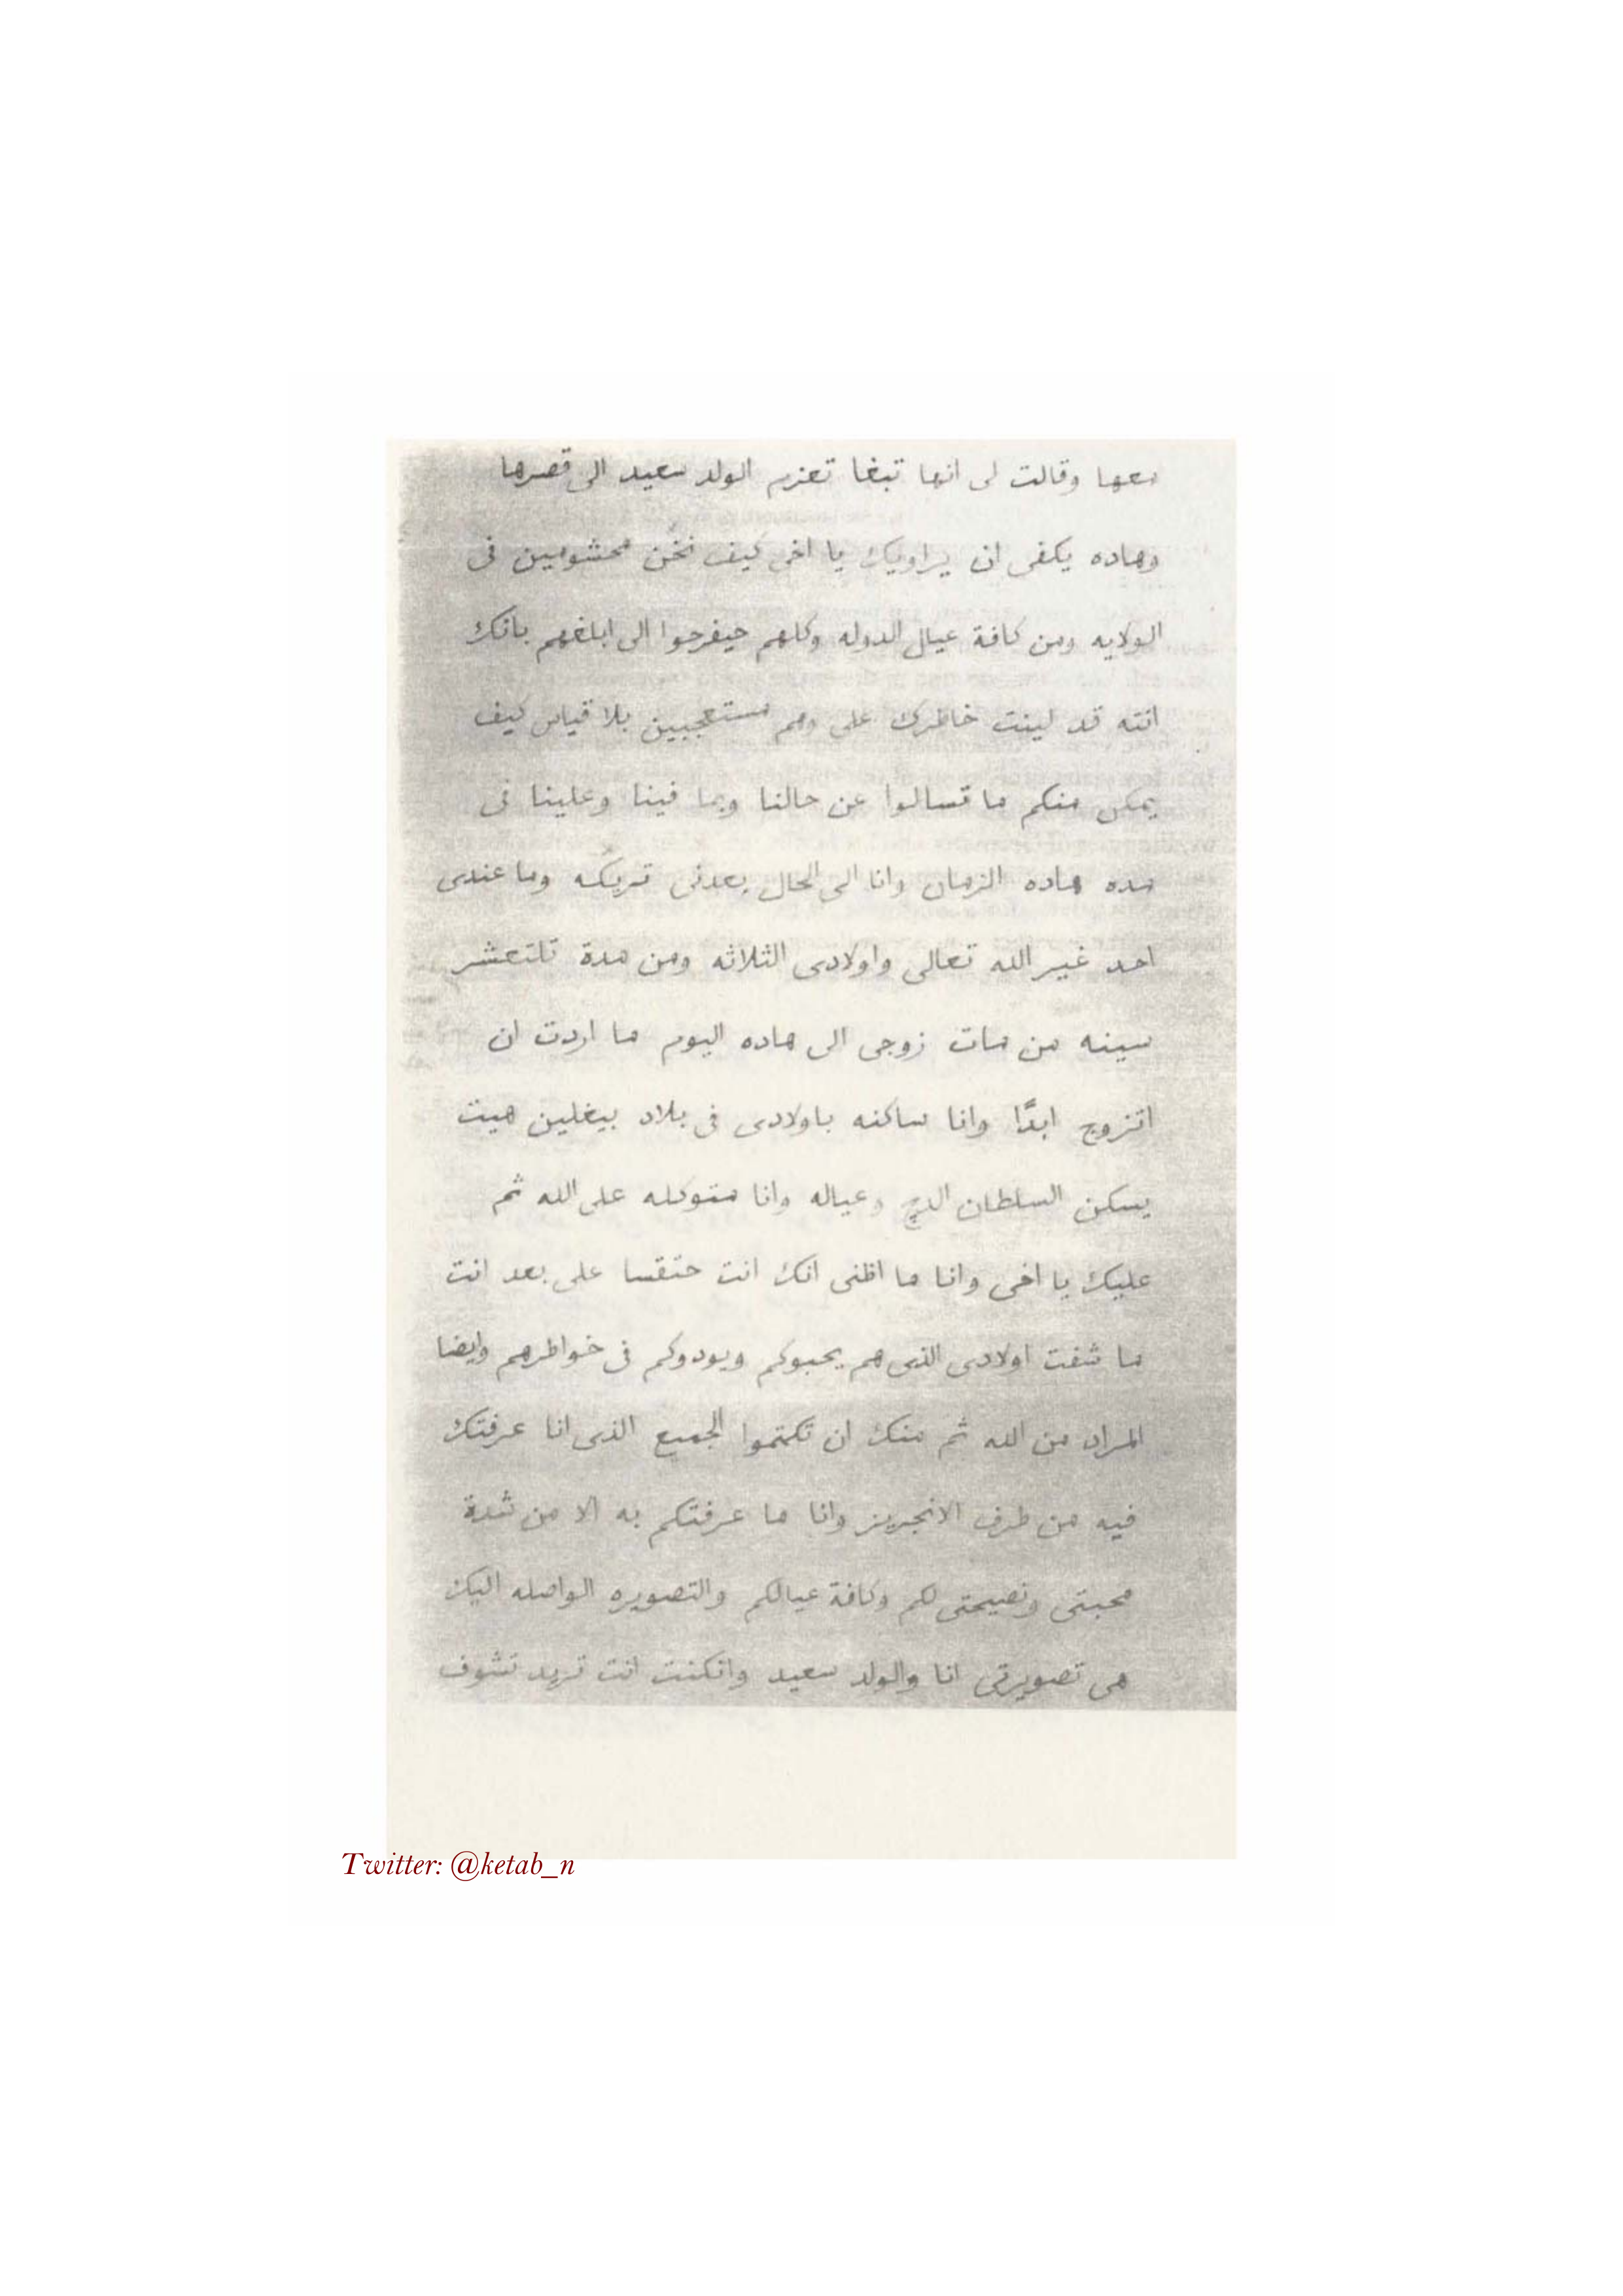 معها وقالت لى انها تبغا تعزم الولد سعيد الى قصرها
وهاده يكفى ان يراويك يا اخى كيف نحن محشومين فى
الولايه ومن كافة عيال الدوله وكلهم حيفرحوا الى ابلغهم بانك
انته قد لينت خاطرك على وهم مستعجبين بلا قياس كيف
يمكن منكم ما تسالوا عن حالنا وبما فينا وعلينا فى
مده هاده الزمان وانا الى الحال بعدنى تريكه وما عندى
احد غير الله تعالى واولادى الثلاثه ومن مدة تلتعشر
سينه من مات زوجى الى هاده اليوم ما اردت ان
اتزوج ابدًا وانا ساكنه باولادى فى بلاد بيغلين هيت
يسكن السلطان وعياله وانا متوكله على الله ثم
عليك يا اخى وانا ما اظنى انك انت حتقسا على بعد انت
ما شفت اولادى الذى هم يحبوكم ويودوكم فى خواطرهم وايضا
المراد من الله ثم منك ان تكتموا الجميع الذى انا عرفتك
فيه من طرف الانجريز وانا ما عرفتكم به الا من شدة
محبتى ونصيحتى لكم وكافة عيالكم والتصويره الواصله اليك
هى تصويرتى انا والولد سعيد وانكنت انت تريد تشوف
Twitter: @ketab_n